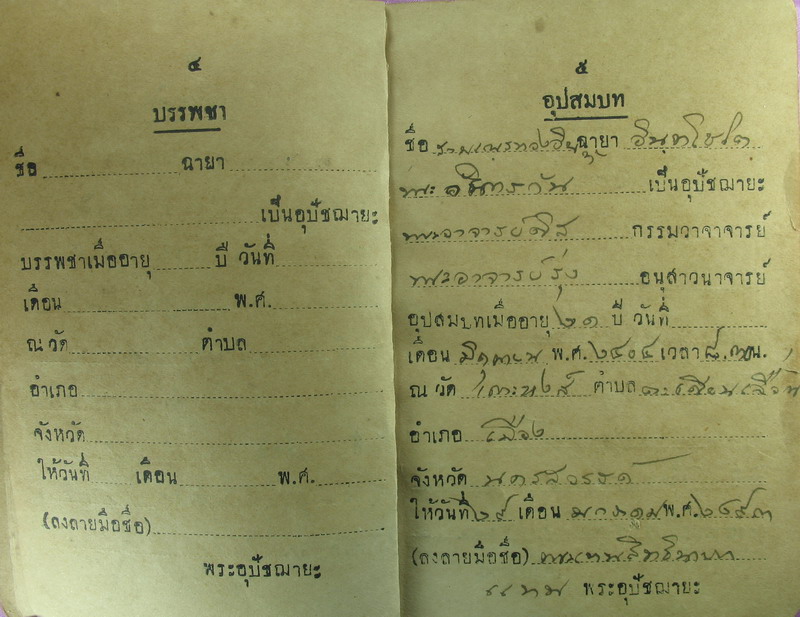 ๔
บรรพชา
ชื่อ ฉายา
เป็นอุปัชฌายะ
บรรพชาเมื่ออายุ ปี วันที่
เดือน พ.ศ.
ณ วัด ตำบล
อำเภอ
จังหวัด
ให้วันที่ เดือน พ.ศ.
(ลงลายมือชื่อ)
พระอุปัชฌายะ
๕
อุปสมบท
ชื่อ ฉายา อินฺทโชโต
เป็นอุปัชฌายะ
พระอาจารย์ กรรมวาจาจารย์
พระอาจารย์รุ่ง อนุสาวนาจารย์
อุปสมบทเมื่ออายุ ๒๑ ปี วันที่
เดือน พ.ศ. เวลา น.
ณ วัด ตำบล ตะเคียนเลื่อน
อำเภอ เมือง
จังหวัด นครสวรรค์
ให้วันที่ ๒๙ เดือน พ.ศ. ๒๔๙๓
(ลงลายมือชื่อ)
แทน พระอุปัชฌายะ